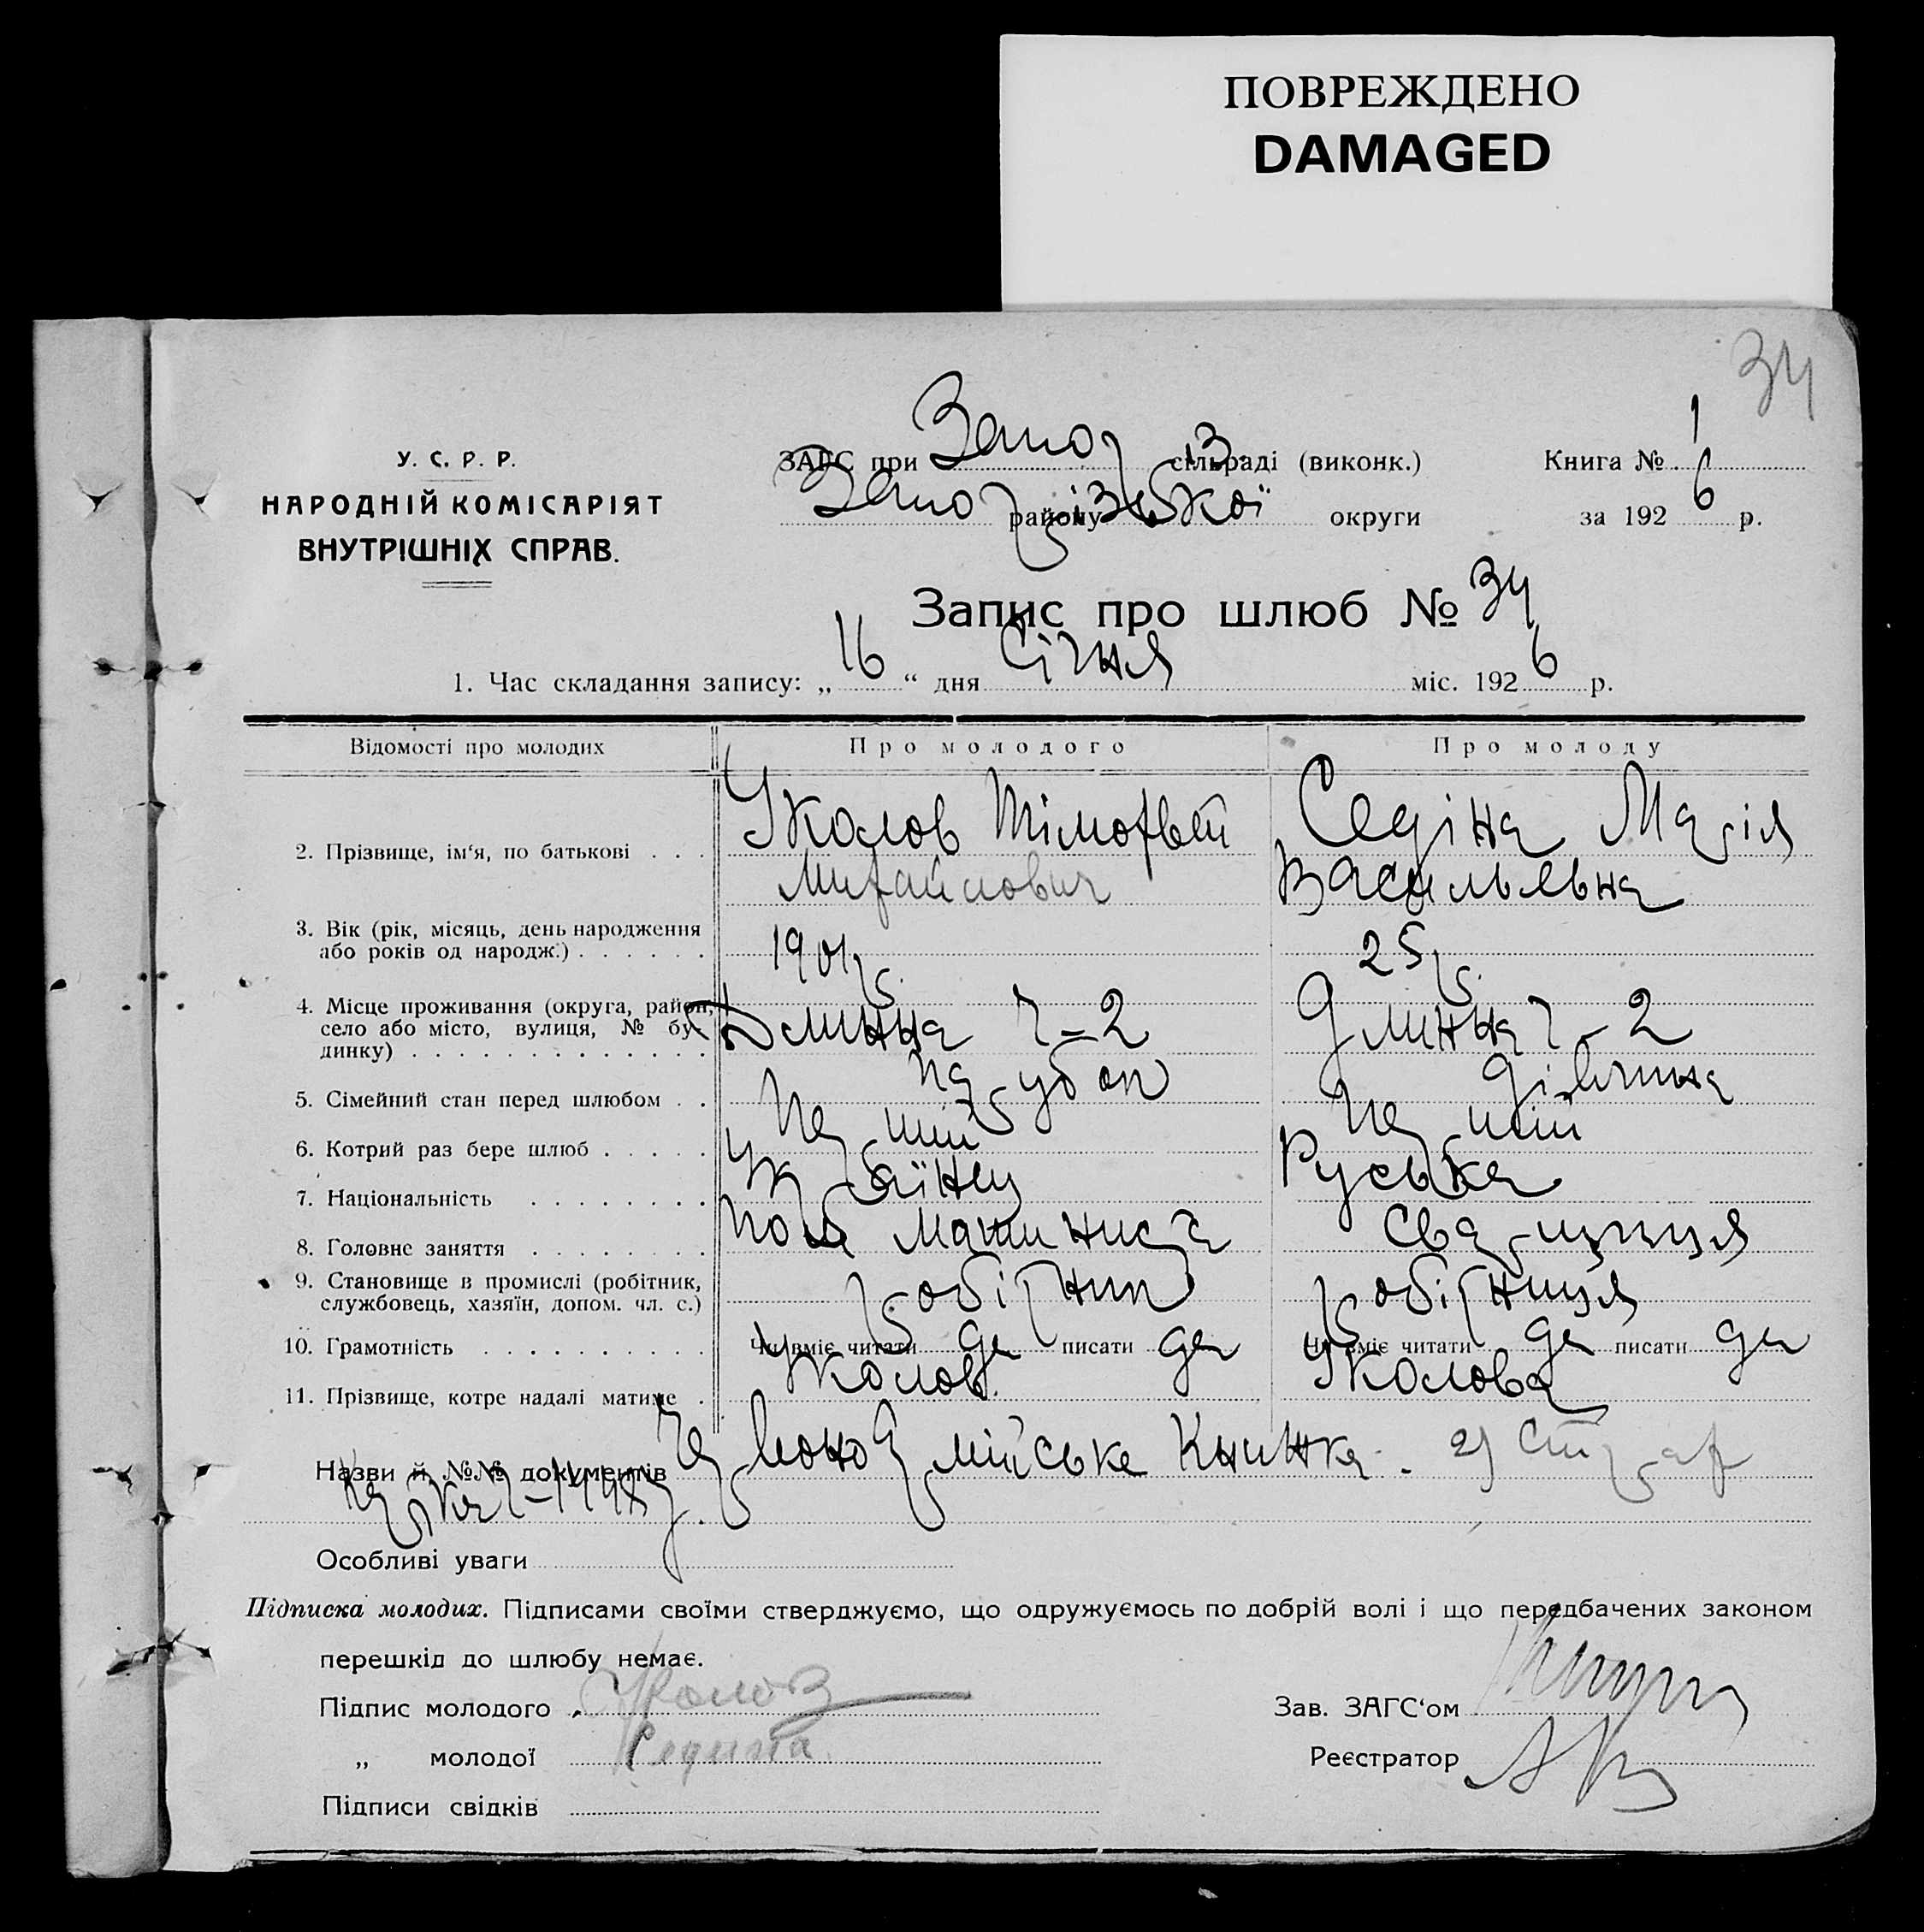 ПОВРЕЖДЕНО
DAMAGED
34
У. С. Р. Р.
НАРОДНІЙ КОМІСАРІЯТ
ВНУТРІШНІХ СПРАВ.
ЗАГС при Запоріз сільраді (виконк.)
Запорізької району округи
Книга № 1
за 1926 р.
Запис про шлюб № 34
1. Час складання запису: „16“ дня Січня міс. 1926 р.
Відомості про молодих Про молодого Про молоду
2. Прізвище, ім‘я, по батькові . . . Уколов Тімофей Седіна Марія
Михайлович Васильевна
3. Вік (рік, місяць, день народження
або років од народж.) . . . . . . 1901 р. 25 р.
4. Місце проживання (округа, район,
село або місто, вулиця, № бу-
динку) . . . . . . . . . . . . . Длинна ч-2 Длинна ч-2
5. Сімейний стан перед шлюбом . . парубок дівчина
6. Котрий раз бере шлюб . . . . . перший перший
7. Національність . . . . . . . Українец Руська
8. Головне заняття . . . . . . . . пом машиниста
9. Становище в промислі (робітник,
службовець, хазяїн, допом. чл. с.) робітник робітниця
10. Грамотність . . . . . . . . . . Чи вміє читати да писати да Чи вміє читати да писати да
11. Прізвище, котре надалі матиме . Уколов Уколова
Назви й №№ документів Червоноармійська Книжка. 2) Страх
Особливі уваги
Підписка молодих. Підписами своїми стверджуємо, що одружуємось по добрій волі і що передбачених законом
перешкід до шлюбу немає.
Підпис молодого Уколов
„ молодої Седина
Підписи свідків
Зав. ЗАГС‘ом
Реєстратор